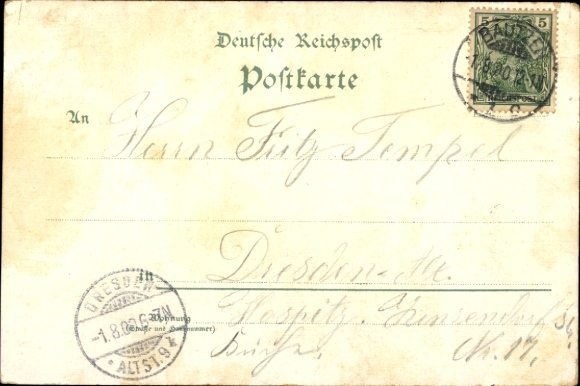 Deutsche Reichspost
Postkarte
5 5
BAUTZEN
-1.8.00.12-1N
* 1 c
An
Herrn Fritz Tempel
in
Dresden-
DRESDEN
-1.8.00.6-7N
* ALTST. 9 k
Wohnung
(Straße und Hausnummer)
Hospitz, Zinzendorf
Nr. 17.